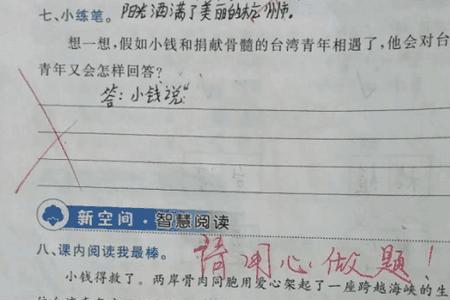 七、小练笔。阳光洒满了美丽的杭州市。
想一想,假如小钱和捐献骨髓的台湾青年相遇了,他会对台
青年又会怎样回答?
答:小钱说“
新空间·智慧阅读
八、课内阅读我最棒。
请用心做题!
小钱得救了。两岸骨肉同胞用爱心架起了一座跨越海峡的生